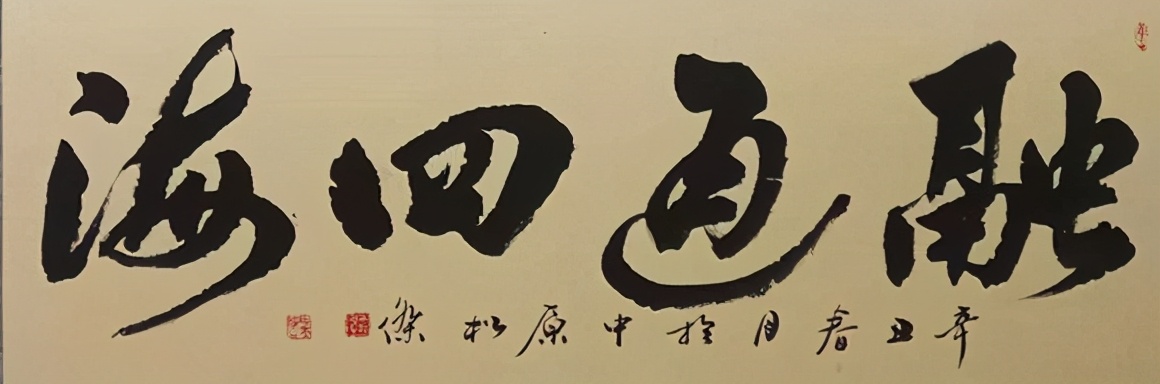 融通四海
辛丑春月於中原松傑